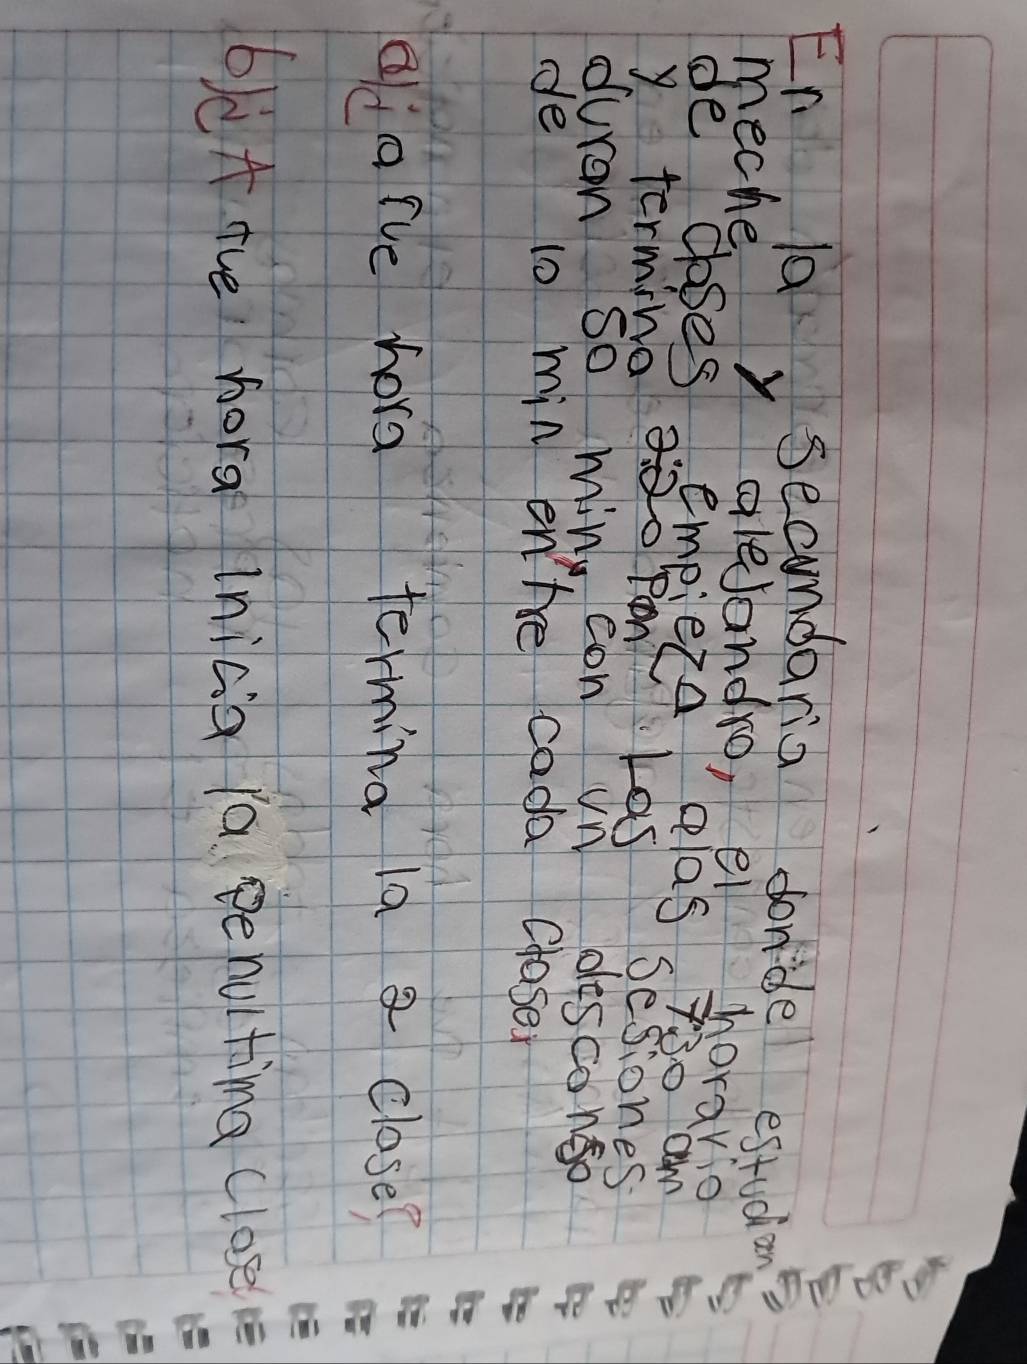 En la secundaria donde estudian
meche y alejandro, el horario
de clases empieza alas 7:30 am
y termina 2:20 pm. Las sesiones
duran 50 min, con un descanso
de 10 min entre cada clase.
a)¿ a que hora termina la 2 clase?
b)¿A que hora inicia la penultima clase?